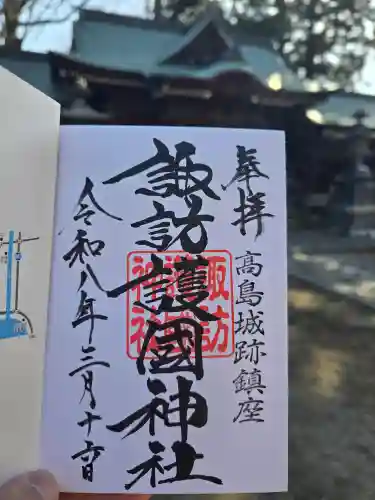 奉拝
高島城跡鎮座
諏訪護國神社
令和八年三月十六日
諏訪護國神社